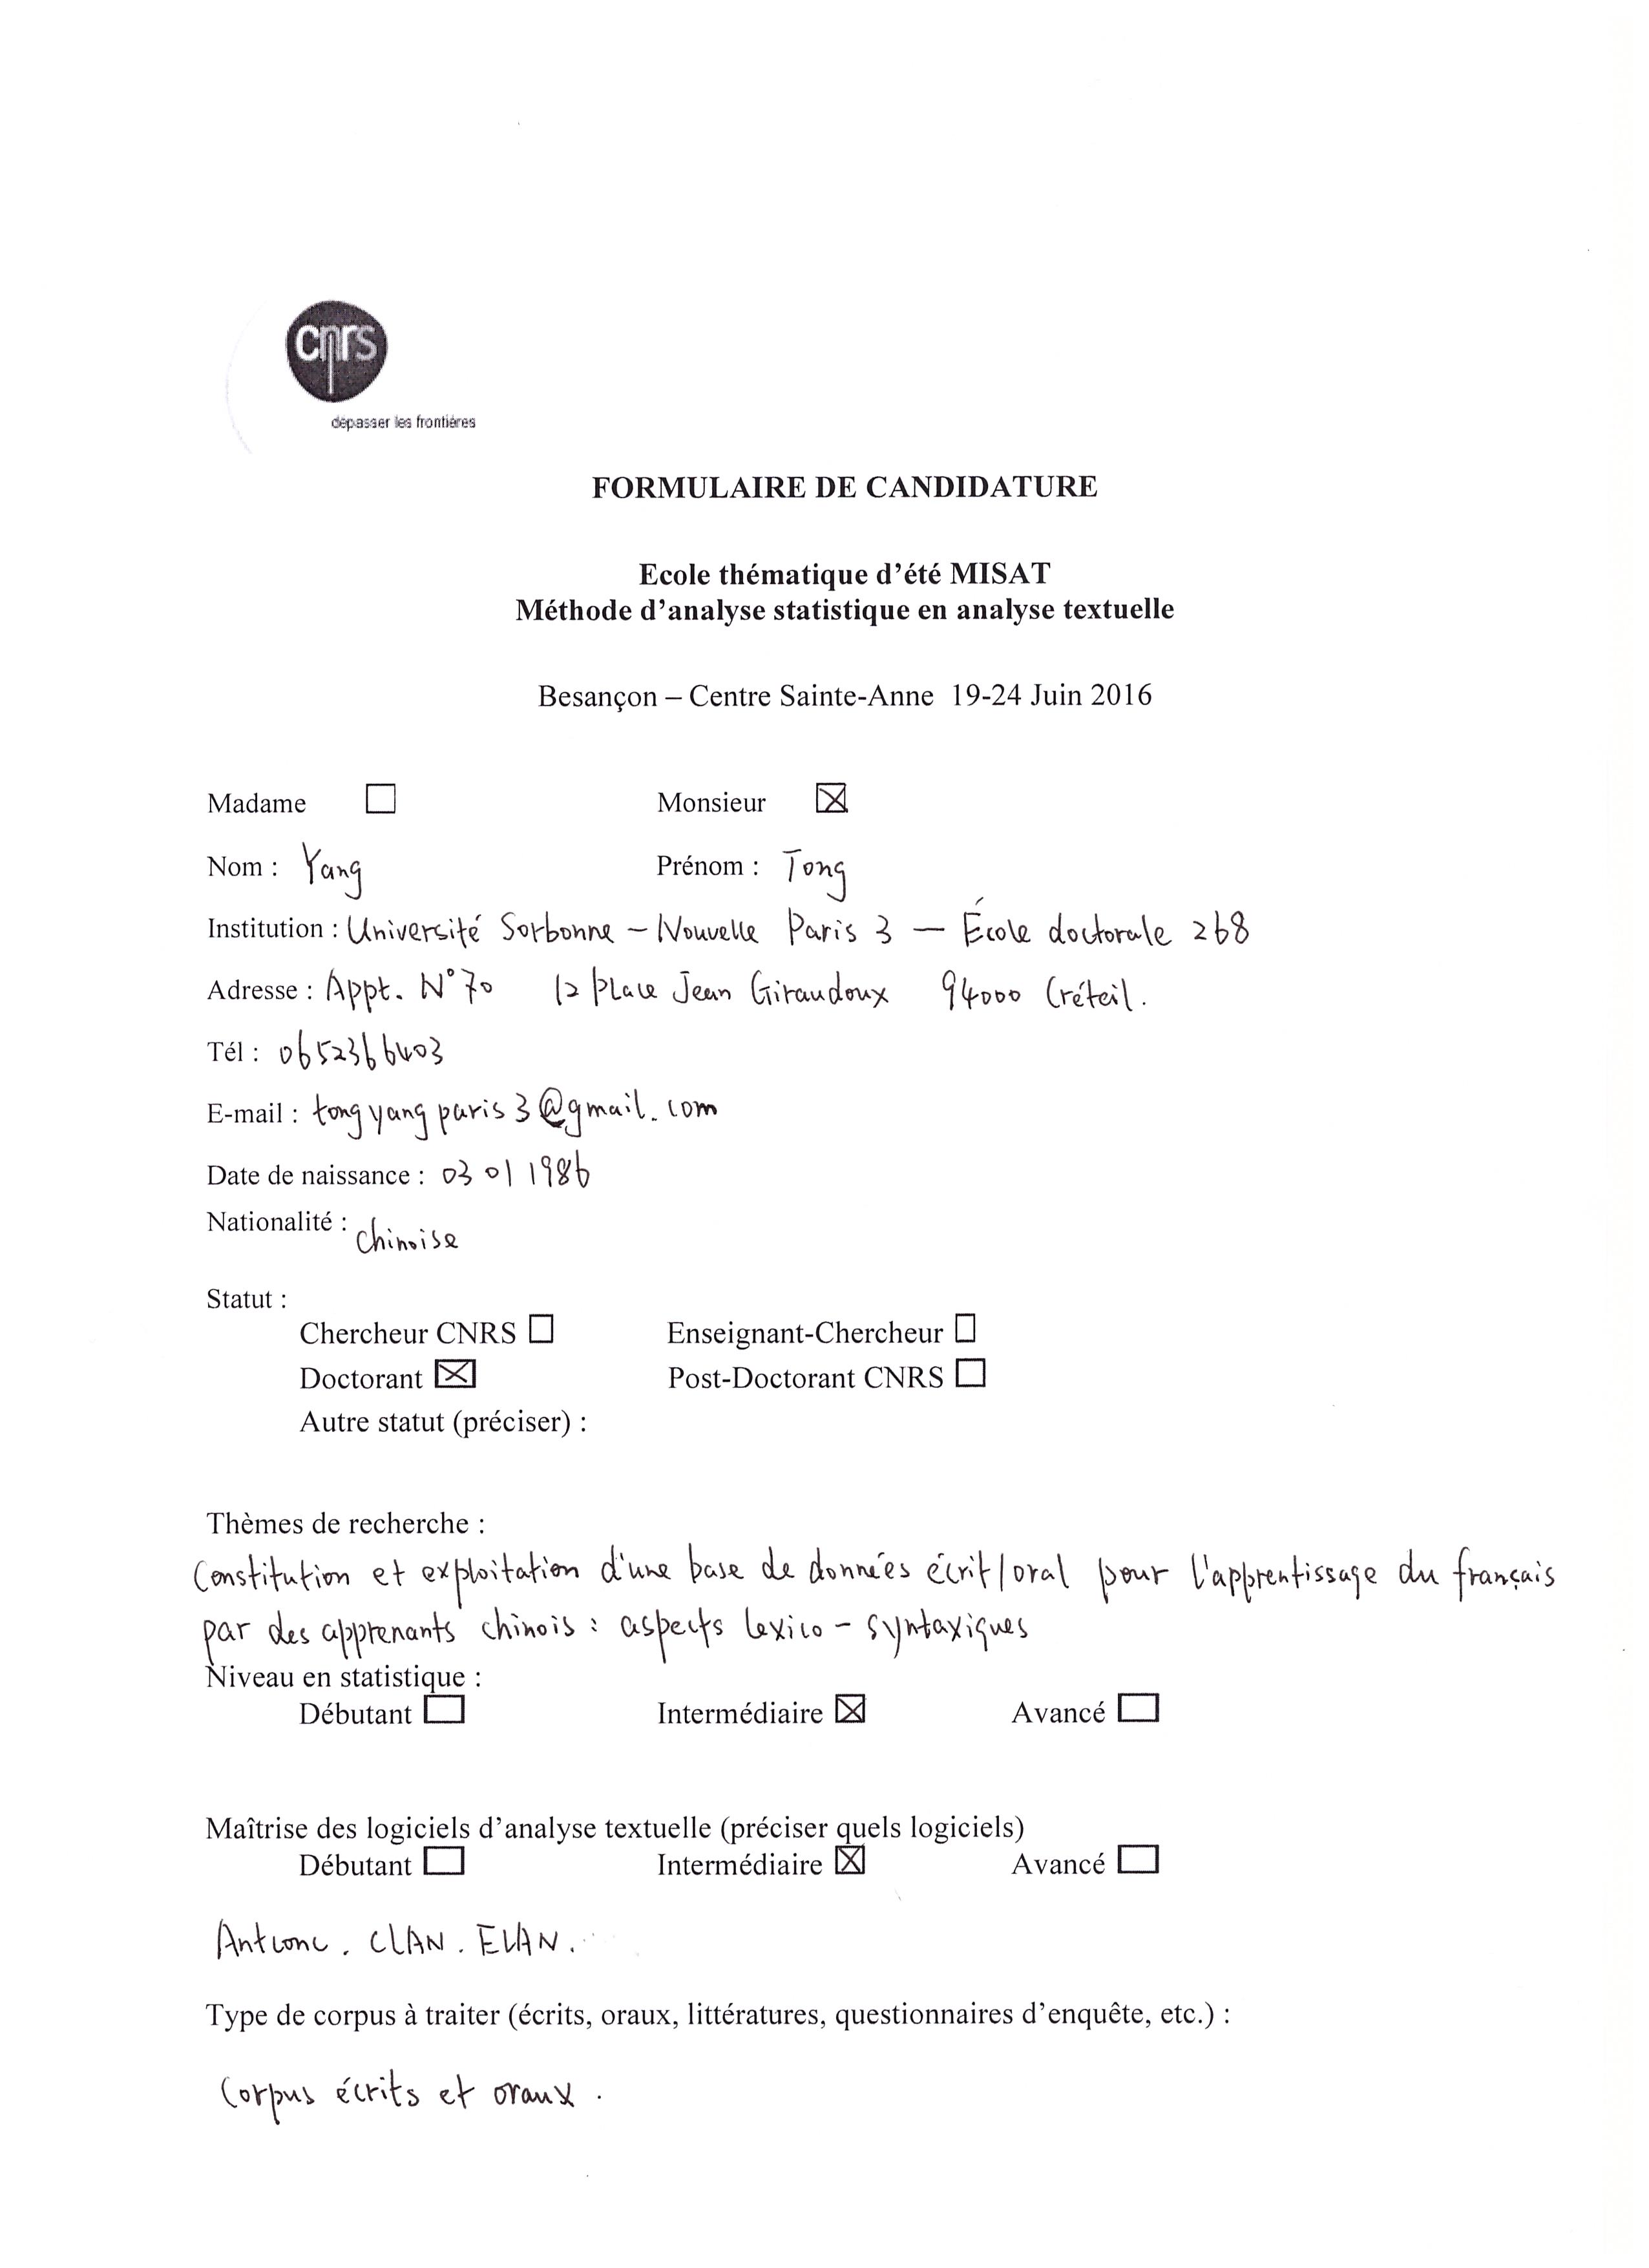 cnrs
dépasser les frontières
FORMULAIRE DE CANDIDATURE
Ecole thématique d'été MISAT
Méthode d'analyse statistique en analyse textuelle
Besançon – Centre Sainte-Anne 19-24 Juin 2016
Madame ☐ Monsieur ☒
Nom : Yang Prénom : Tong
Institution : Université Sorbonne - Nouvelle Paris 3 — École doctorale 268
Adresse : Appt. N°70 12 place Jean Giraudoux 94000 Créteil.
Tél : 0652366403
E-mail : tongyangparis3@gmail.com
Date de naissance : 03 01 1986
Nationalité : chinoise
Statut :
Chercheur CNRS ☐ Enseignant-Chercheur ☐
Doctorant ☒ Post-Doctorant CNRS ☐
Autre statut (préciser) :
Thèmes de recherche :
Constitution et exploitation d'une base de données écrit/oral pour l'apprentissage du français
par des apprenants chinois : aspects lexico - syntaxiques
Niveau en statistique :
Débutant ☐ Intermédiaire ☒ Avancé ☐
Maîtrise des logiciels d'analyse textuelle (préciser quels logiciels)
Débutant ☐ Intermédiaire ☒ Avancé ☐
Antconc. CLAN. ELAN.
Type de corpus à traiter (écrits, oraux, littératures, questionnaires d'enquête, etc.) :
Corpus écrits et oraux.